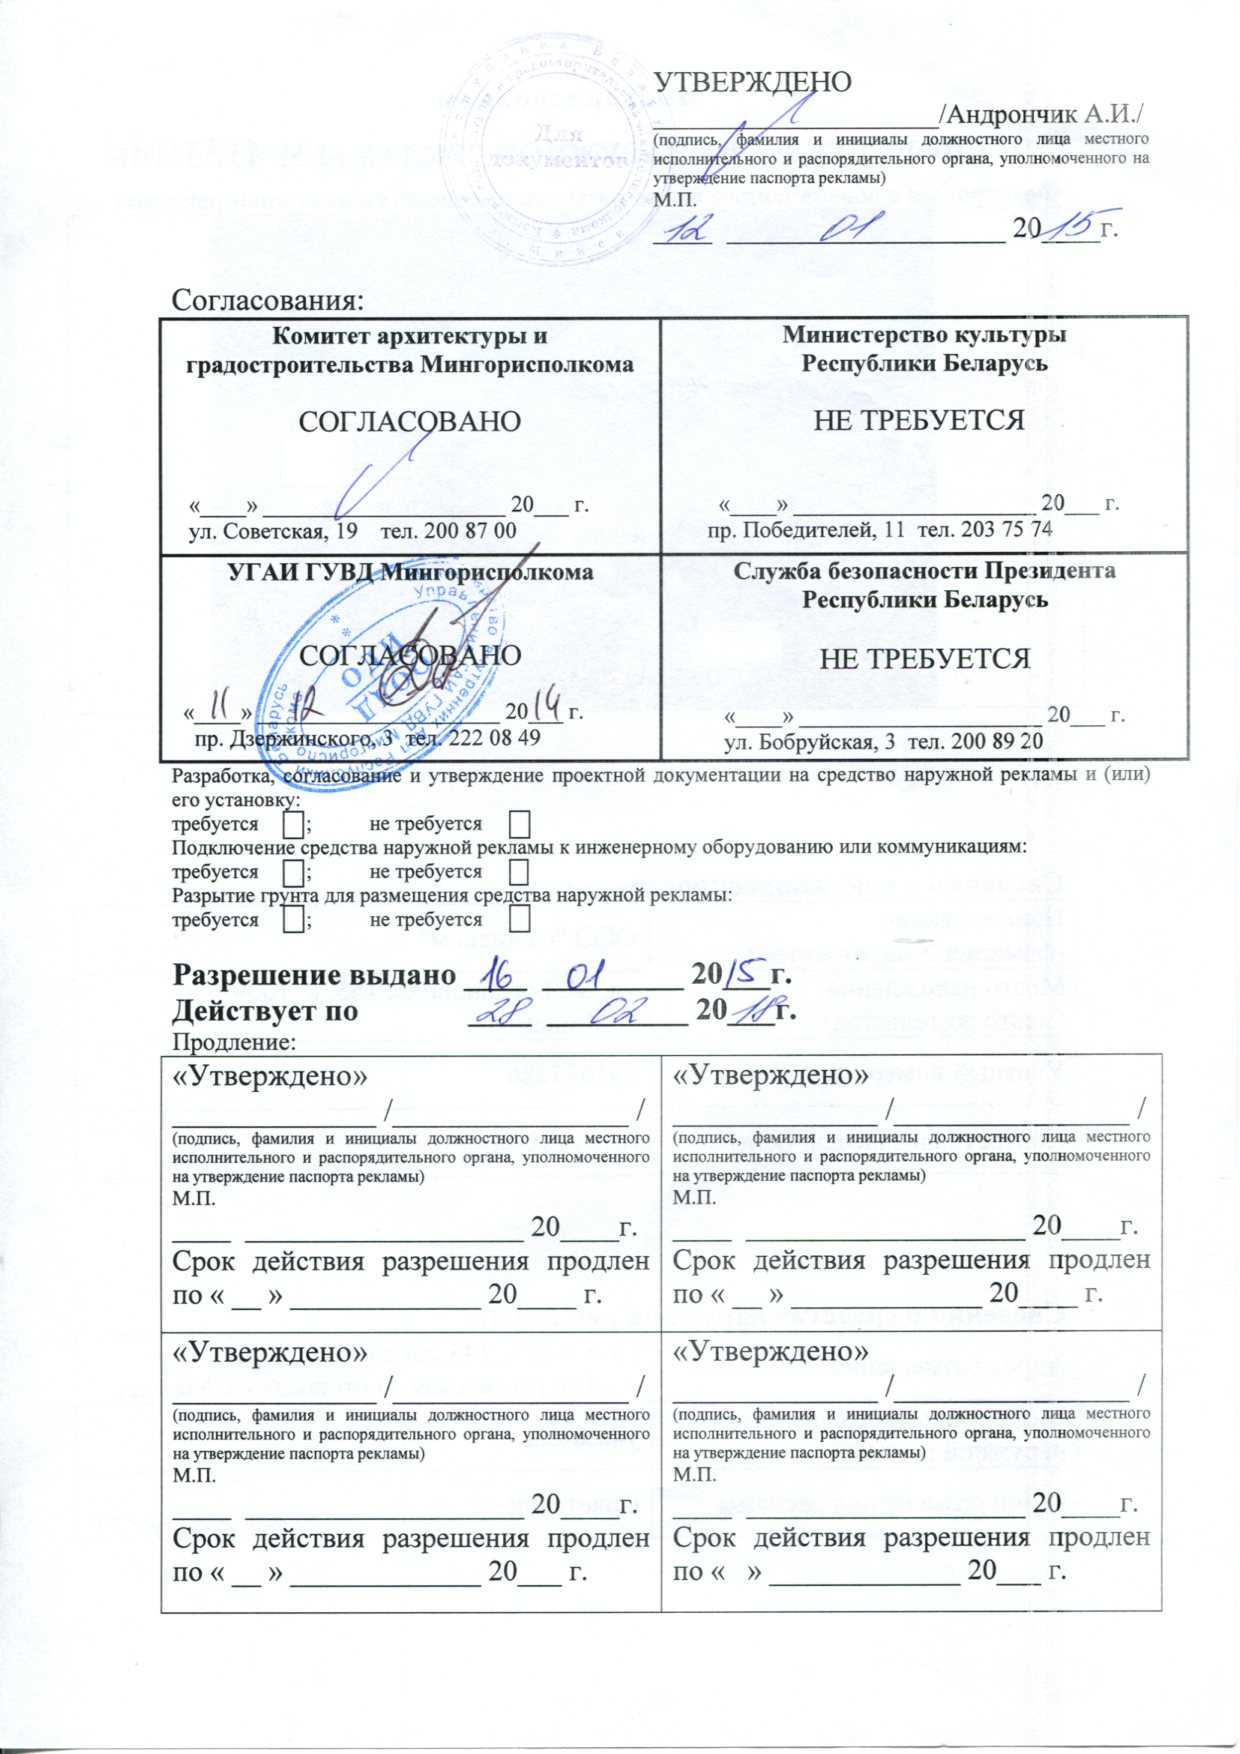 УТВЕРЖДЕНО
____________________/Андрончик А.И./
(подпись, фамилия и инициалы должностного лица местного
исполнительного и распорядительного органа, уполномоченного на
утверждение паспорта рекламы)
М.П.
12 01 2015г.
Для
документов
Согласования:
Комитет архитектуры и
градостроительства Мингорисполкома
СОГЛАСОВАНО
«____» ____________________ 20___ г.
ул. Советская, 19 тел. 200 87 00
Министерство культуры
Республики Беларусь
НЕ ТРЕБУЕТСЯ
«____» ____________________ 20___ г.
пр. Победителей, 11 тел. 203 75 74
УГАИ ГУВД Мингорисполкома
СОГЛАСОВАНО
«11» 12 2014 г.
пр. Дзержинского, 3 тел. 222 08 49
Служба безопасности Президента
Республики Беларусь
НЕ ТРЕБУЕТСЯ
«____» ____________________ 20___ г.
ул. Бобруйская, 3 тел. 200 89 20
Разработка, согласование и утверждение проектной документации на средство наружной рекламы и (или)
его установку:
требуется ; не требуется
Подключение средства наружной рекламы к инженерному оборудованию или коммуникациям:
требуется ; не требуется
Разрытие грунта для размещения средства наружной рекламы:
требуется ; не требуется
Разрешение выдано 16 01 2015г.
Действует по 28 02 2018г.
Продление:
«Утверждено»
______________ /________________ /
(подпись, фамилия и инициалы должностного лица местного
исполнительного и распорядительного органа, уполномоченного
на утверждение паспорта рекламы)
М.П.
____ ___________________ 20____г.
Срок действия разрешения продлен
по « __ » _____________ 20____ г.
«Утверждено»
______________ /________________ /
(подпись, фамилия и инициалы должностного лица местного
исполнительного и распорядительного органа, уполномоченного
на утверждение паспорта рекламы)
М.П.
____ ___________________ 20____г.
Срок действия разрешения продлен
по « __ » _____________ 20____ г.
«Утверждено»
______________ /________________ /
(подпись, фамилия и инициалы должностного лица местного
исполнительного и распорядительного органа, уполномоченного
на утверждение паспорта рекламы)
М.П.
____ ___________________ 20____г.
Срок действия разрешения продлен
по « __ » _____________ 20___ г.
«Утверждено»
______________ /________________ /
(подпись, фамилия и инициалы должностного лица местного
исполнительного и распорядительного органа, уполномоченного
на утверждение паспорта рекламы)
М.П.
____ ___________________ 20____г.
Срок действия разрешения продлен
по « » _____________ 20___ г.